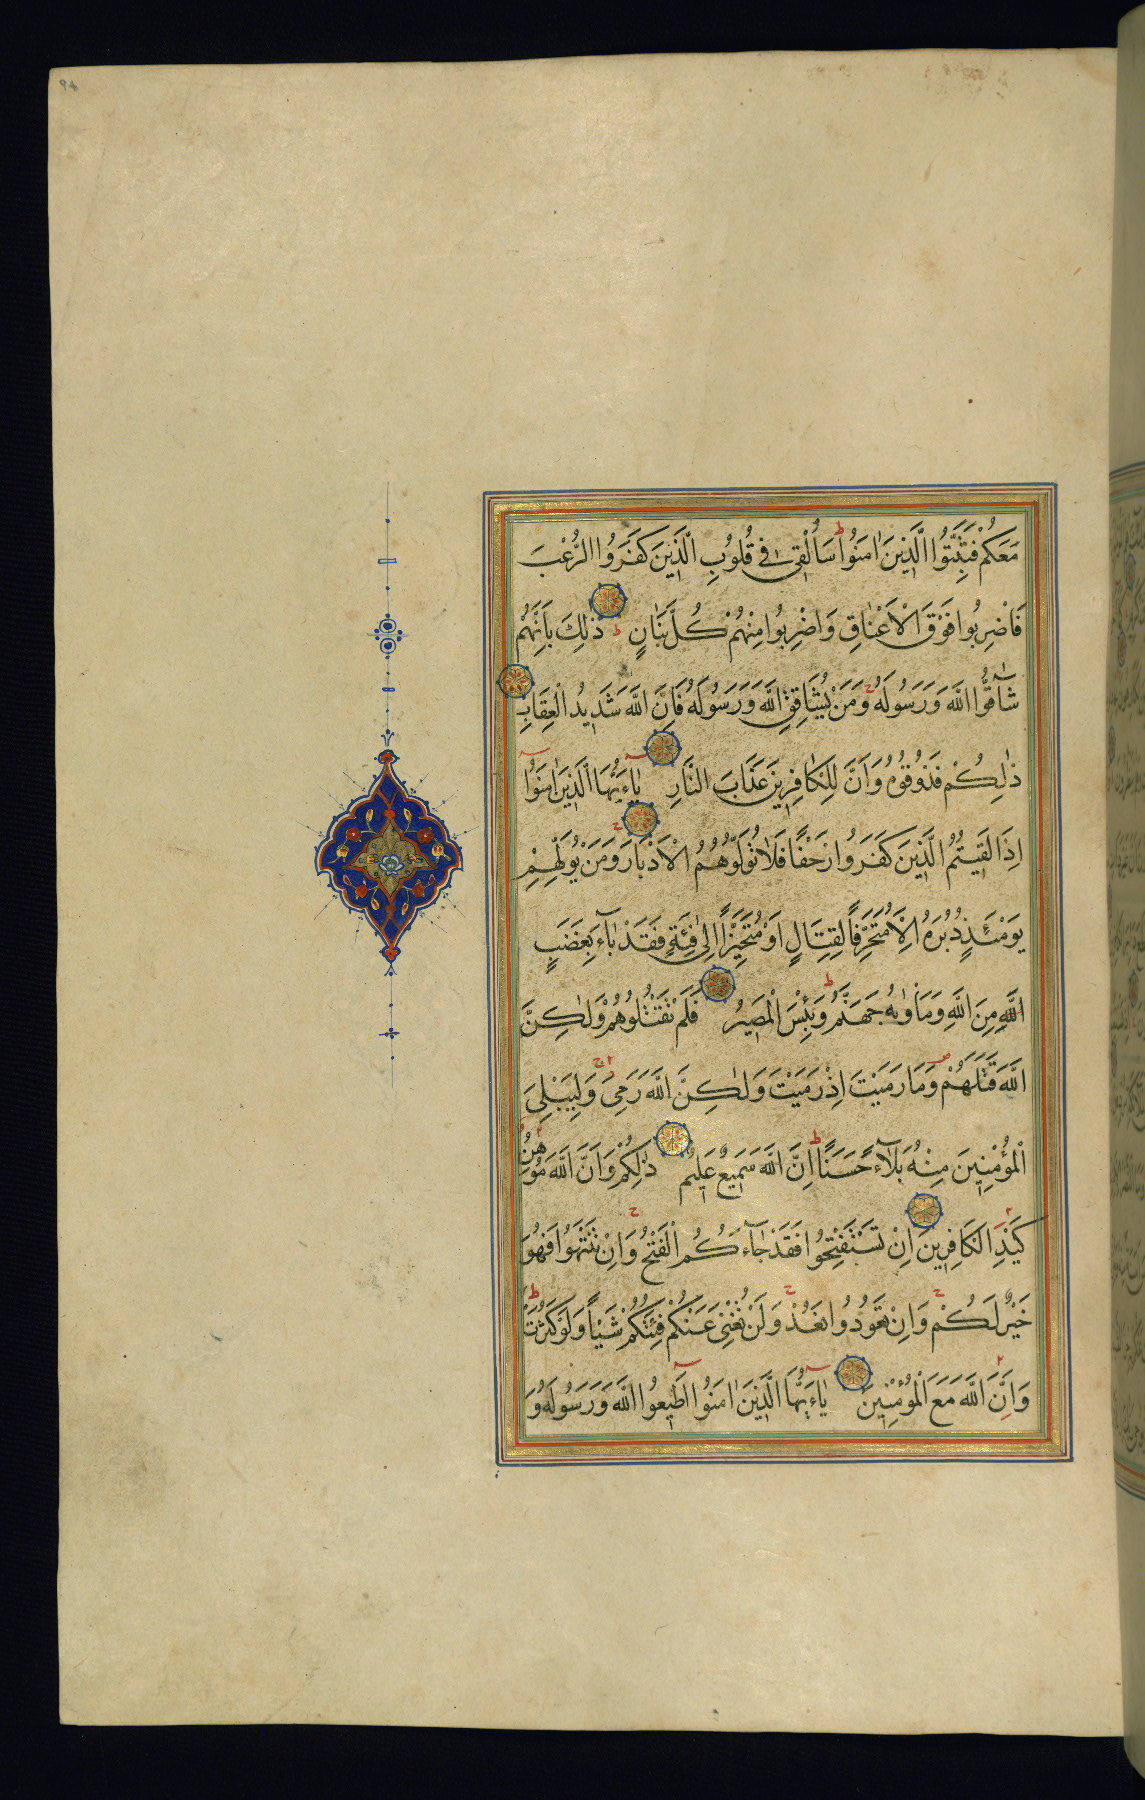 ٩٤
مَعَكُمْ فَثَبِّتُوا الَّذِينَ اٰمَنُوا ط سَاُلْقِى فِي قُلُوبِ الَّذِينَ كَفَرُوا الرُّعْبَ
فَاضْرِبُوا فَوْقَ الْاَعْنَاقِ وَاضْرِبُوا مِنْهُمْ كُلَّ بَنَانٍ ط ذٰلِكَ بِاَنَّهُمْ
شَاقُّوا اللَّهَ وَرَسُولَهُ ج وَمَنْ يُشَاقِقِ اللَّهَ وَرَسُولَهُ فَاِنَّ اللَّهَ شَدِيدُ الْعِقَابِ
ذٰلِكُمْ فَذُوقُوهُ وَاَنَّ لِلْكَافِرِينَ عَذَابَ النَّارِ يَاءَيُّهَا الَّذِينَ اٰمَنُوا
اِذَا لَقِيتُمُ الَّذِينَ كَفَرُوا زَحْفًا فَلَا تُوَلُّوهُمُ الْاَدْبَارَ ج وَمَنْ يُوَلِّهِمْ
يَوْمَئِذٍ دُبُرَهُ اِلَّا مُتَحَرِّفًا لِقِتَالٍ اَوْ مُتَحَيِّزًا اِلٰى فِئَةٍ فَقَدْ بَآءَ بِغَضَبٍ
اللَّهِ مِنَ اللَّهِ وَمَاْوٰىهُ جَهَنَّمُ ط وَبِئْسَ الْمَصِيرُ فَلَمْ تَقْتُلُوهُمْ وَلٰكِنَّ
اللَّهَ قَتَلَهُمْ ص وَمَا رَمَيْتَ اِذْ رَمَيْتَ وَلٰكِنَّ اللَّهَ رَمٰى ج وَلِيُبْلِيَ
الْمُؤْمِنِينَ مِنْهُ بَلَآءً حَسَنًا ط اِنَّ اللَّهَ سَمِيعٌ عَلِيمٌ ذٰلِكُمْ وَاَنَّ اللَّهَ مُوهِنُ
كَيْدِ الْكَافِرِينَ اِنْ تَسْتَفْتِحُوا فَقَدْ جَآءَكُمُ الْفَتْحُ ج وَاِنْ تَنْتَهُوا فَهُوَ
خَيْرٌ لَكُمْ ج وَاِنْ تَعُودُوا نَعُدْ ج وَلَنْ تُغْنِىَ عَنْكُمْ فِئَتُكُمْ شَيْاً وَلَوْ كَثُرَتْ ط
وَاَنَّ اللَّهَ مَعَ الْمُؤْمِنِينَ يَاءَيُّهَا الَّذِينَ اٰمَنُوا اَطِيعُوا اللَّهَ وَرَسُولَهُ وَ